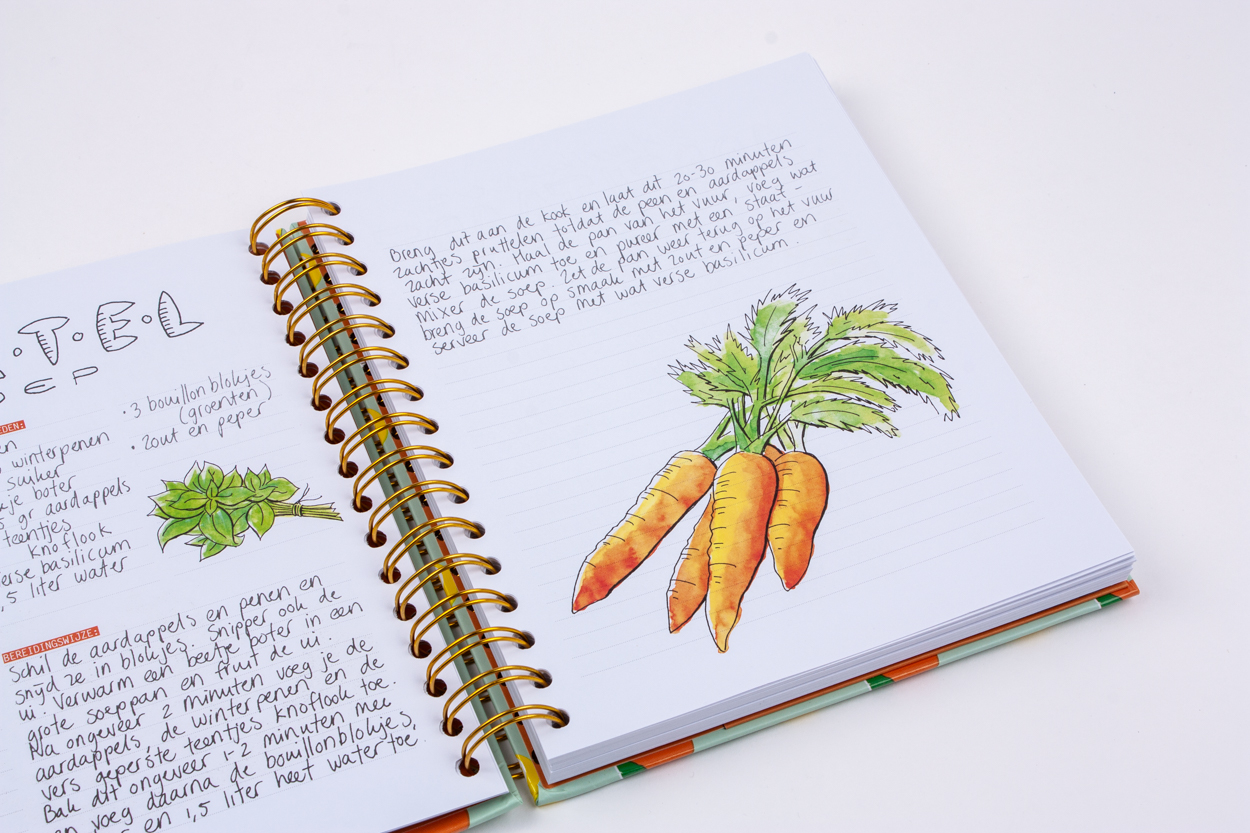 T.E.L
EP
EDEN:
winterpenen
suiker
je boter
gr aardappels
teentjes
knoflook
verse basilicum
,5 liter water
• 3 bouillonblokjes
(groenten)
• zout en peper
BEREIDINGSWIJZE:
Schil de aardappels en penen en
snijd ze in blokjes. Snipper ook de
ui. Verwarm een beetje boter in een
grote soeppan en fruit de ui.
Na ongeveer 2 minuten voeg je de
aardappels, de winterpenen en de
vers geperste teentjes knoflook toe.
Bak dit ongeveer 1-2 minuten mee
en voeg daarna de bouillonblokjes,
en 1,5 liter heet water toe.
Breng dit aan de kook en laat dit 20-30 minuten
zachtjes pruttelen totdat de peen en aardappels
zacht zijn. Haal de pan van het vuur, voeg wat
verse basilicum toe en pureer met een staaf -
mixer de soep. Zet de pan weer terug op het vuur
breng de soep op smaak met zout en peper en
serveer de soep met wat verse basilicum.